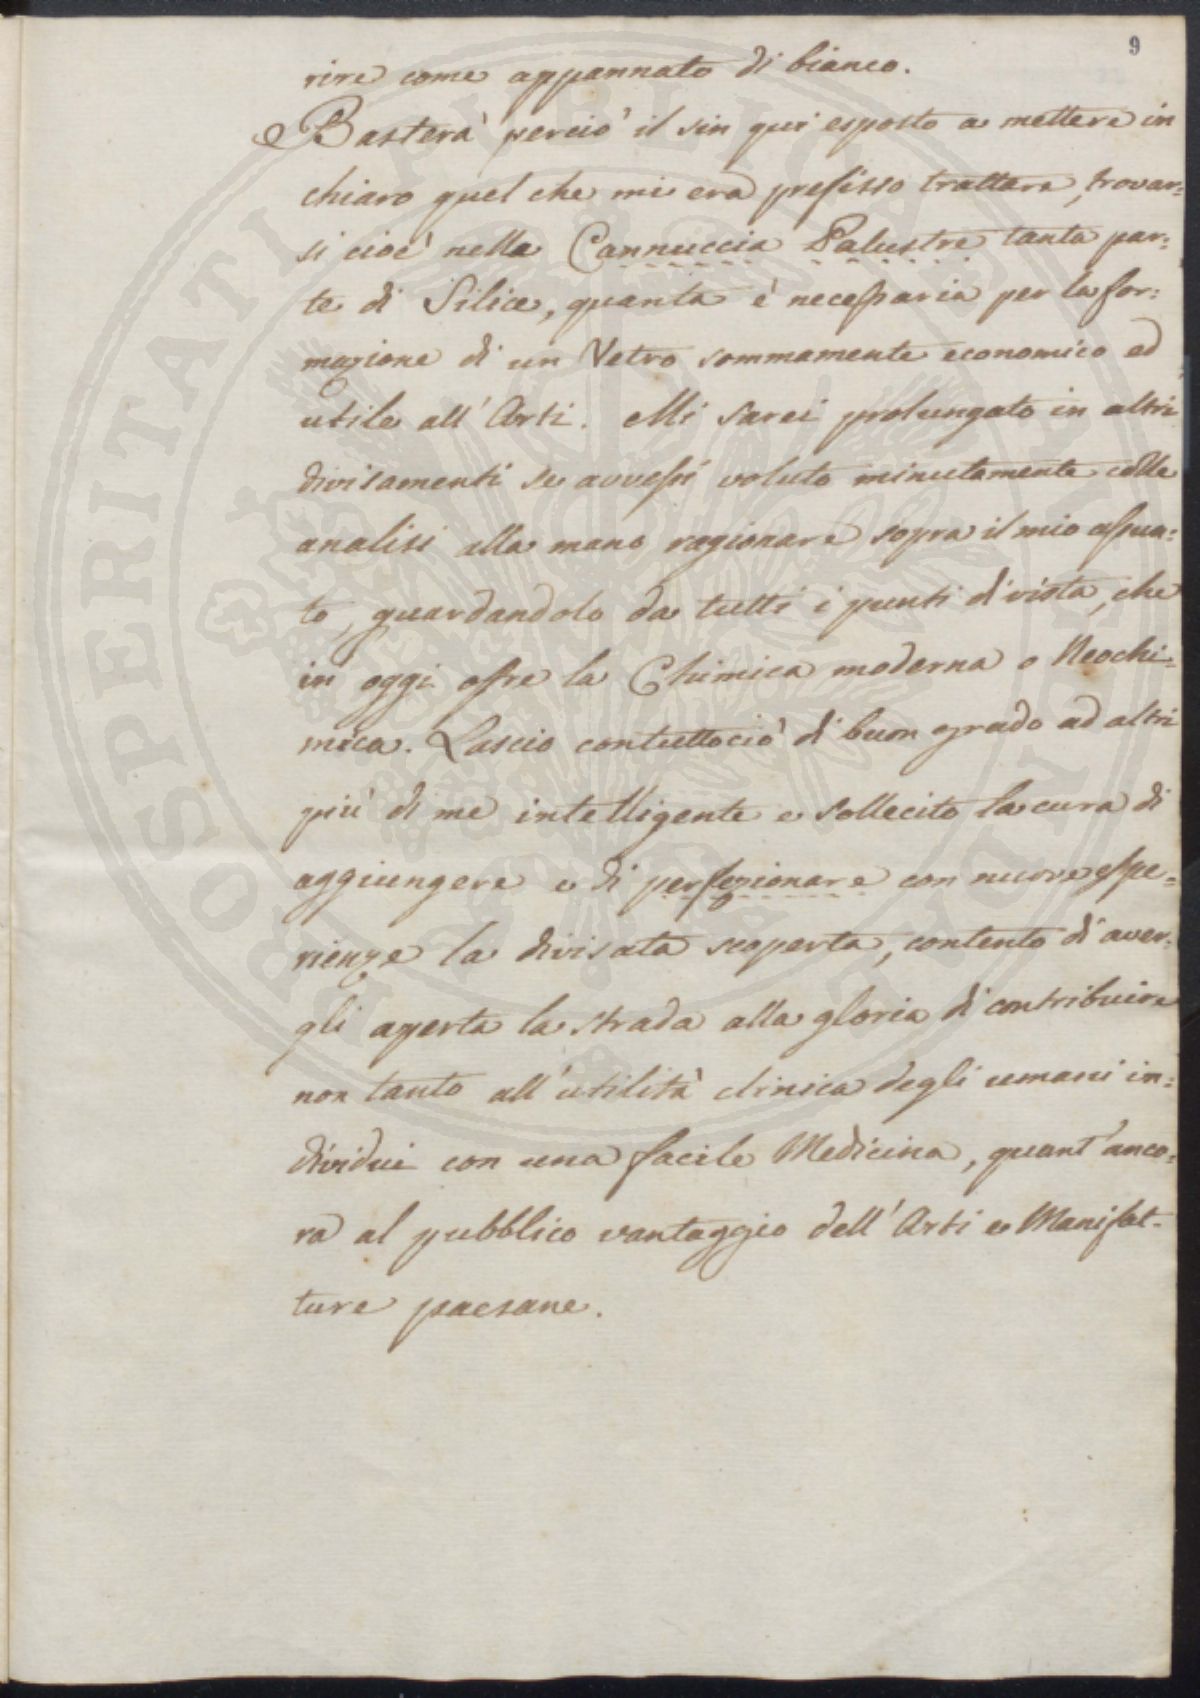 9
rire come appannato di bianco.
Basterà perciò il sin quì esposto a mettere in
chiaro quel che mi era prefisso trattare, trovar=
si cioè nella Cannuccia Palustre tanta par=
te di Silice, quanta è necessaria per la for=
mazione di un Vetro sommamente economico ed
utile all'Arti. Mi sarei prolungato in altri
divisamenti se avvessi voluto minutamente colle
analisi alla mano ragionare sopra il mio assun=
to, guardandolo da tutti i punti di vista, che
in oggi ofre la Chimica moderna o Neochi=
mica. Lascio contuttociò di buon grado ad altri
più di me intelligente e sollecito la cura di
aggiungere e di perfezionare con nuove espe=
rienze la divisata scoperta, contento di aver=
gli aperta la strada alla gloria di contribuire
non tanto all'utilità clinica degli umani in=
dividui con una facile Medicina, quant'anco=
ra al pubblico vantaggio dell'Arti e Manifat-
ture paesane.
PROSPERITATI PUBLICAE AUGENDAE